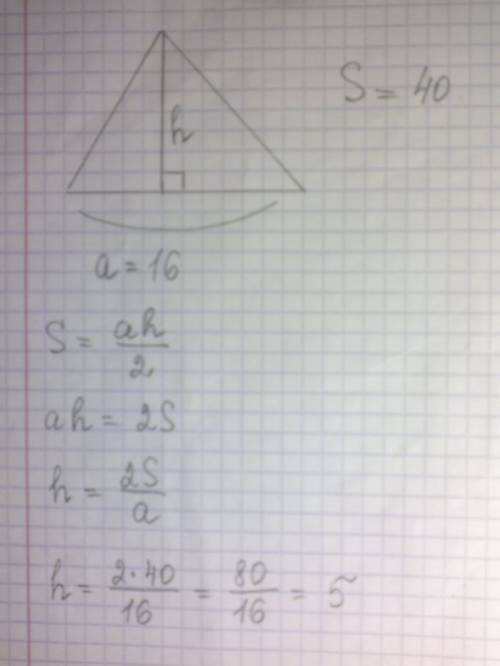 S = 40
h
a = 16
S = ah/2
ah = 2S
h = 2S/a
h = 2·40/16 = 80/16 = 5